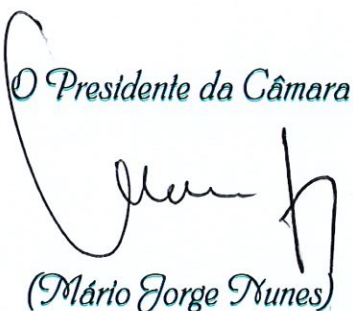 O Presidente da Câmara
(Mário Jorge Nunes)